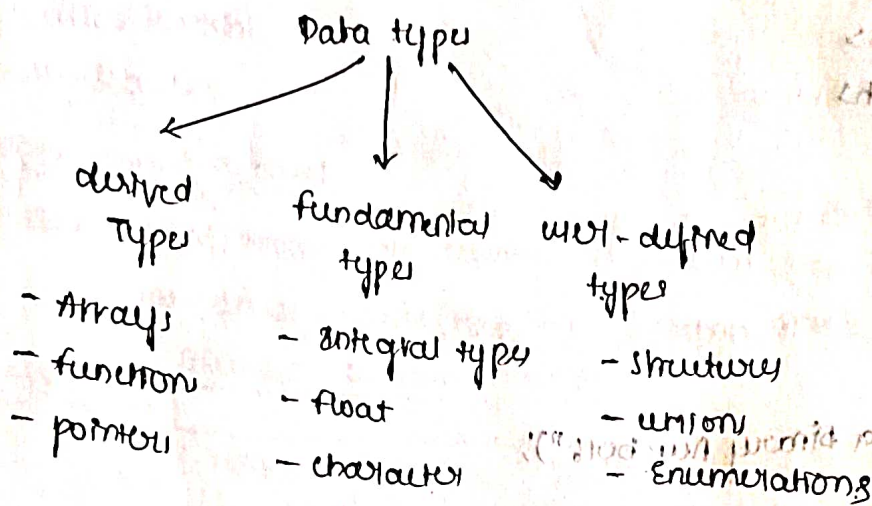 Data types
derived
Types
- Arrays
- function
- pointers
fundamental
types
- Integral types
- float
- character
user-defined
types
- structures
- unions
- Enumerations